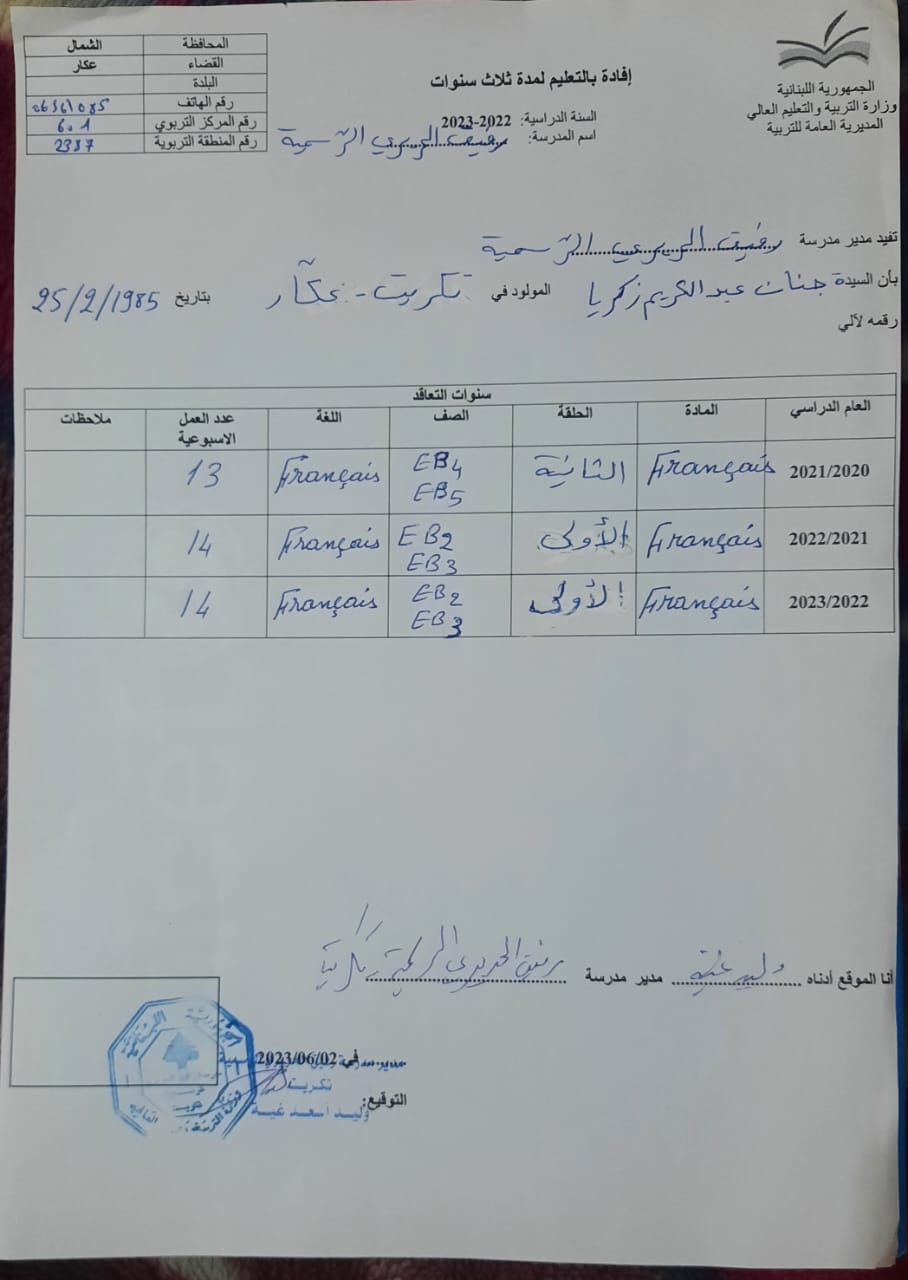 الجمهورية اللبنانية
وزارة التربية والتعليم العالي
المديرية العامة للتربية
إفادة بالتعليم لمدة ثلاث سنوات
السنة الدراسية: 2022-2023
اسم المدرسة: رفيق الحريري الرسمية
المحافظة الشمال
القضاء عكار
البلدة
رقم الهاتف 06361085
رقم المركز التربوي 601
رقم المنطقة التربوية 2387
تفيد مدير مدرسة رفيق الحريري الرسمية
بأن السيدة جنان عبد الكريم زكريا المولود في تكريت - عكّار بتاريخ 25/2/1985
رقمه لآلي
سنوات التعاقد
العام الدراسي المادة الحلقة الصف اللغة عدد العمل الاسبوعية ملاحظات
2021/2020 Français الثانية EB4 EB5 Français 13
2022/2021 Français الأولى EB2 EB3 Français 14
2023/2022 Français الأولى EB2 EB3 Français 14
أنا الموقع أدناه وليد غية مدير مدرسة رفيق الحريري الرسمية تكريت
في 2023/06/02
تكريت
التوقيع:
وليد اسعد غية